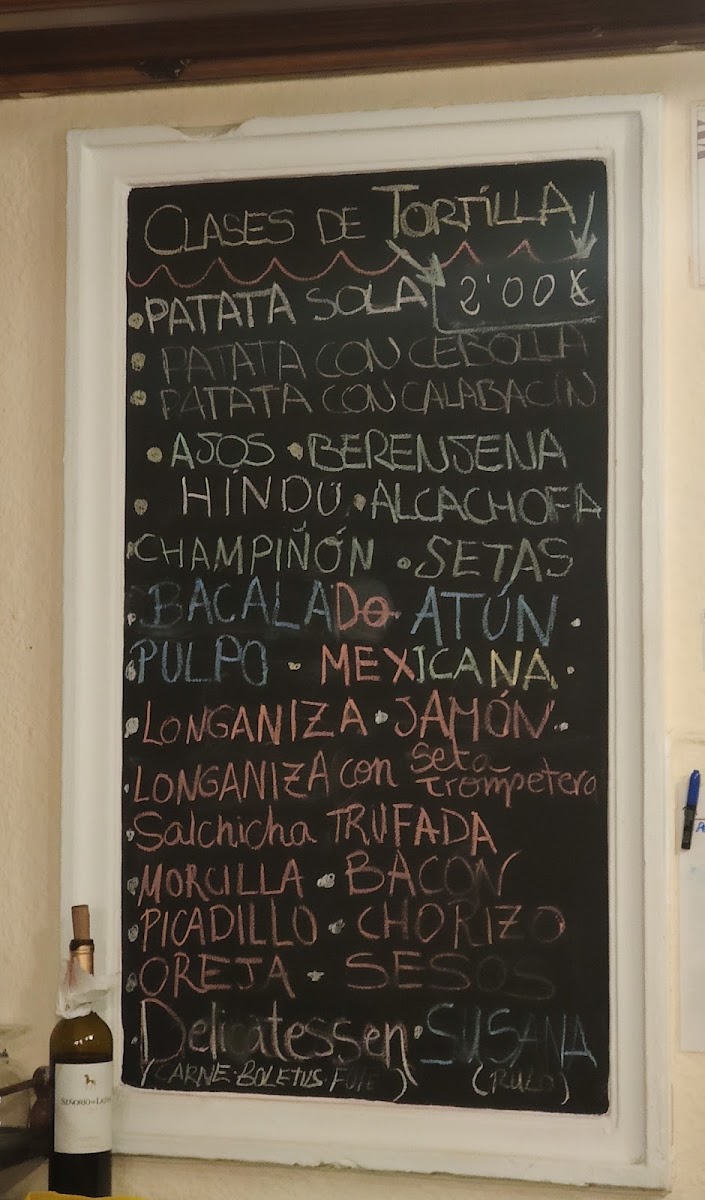 CLASES DE TORTILLA
PATATA SOLA 2'00€
PATATA CON CEBOLLA
PATATA CON CALABACÍN
AJOS • BERENJENA
HINDÚ • ALCACHOFA
CHAMPIÑÓN • SETAS
BACALADO ATÚN •
PULPO - MEXICANA •
LONGANIZA • JAMÓN •
LONGANIZA con seta trompetera
Salchicha TRUFADA
MORCILLA • BACON
PICADILLO • CHORIZO
OREJA • SESOS
Delicatessen • SUSANA
(CARNE-BOLETUS-FOIE) (RULO)
SEÑORÍO